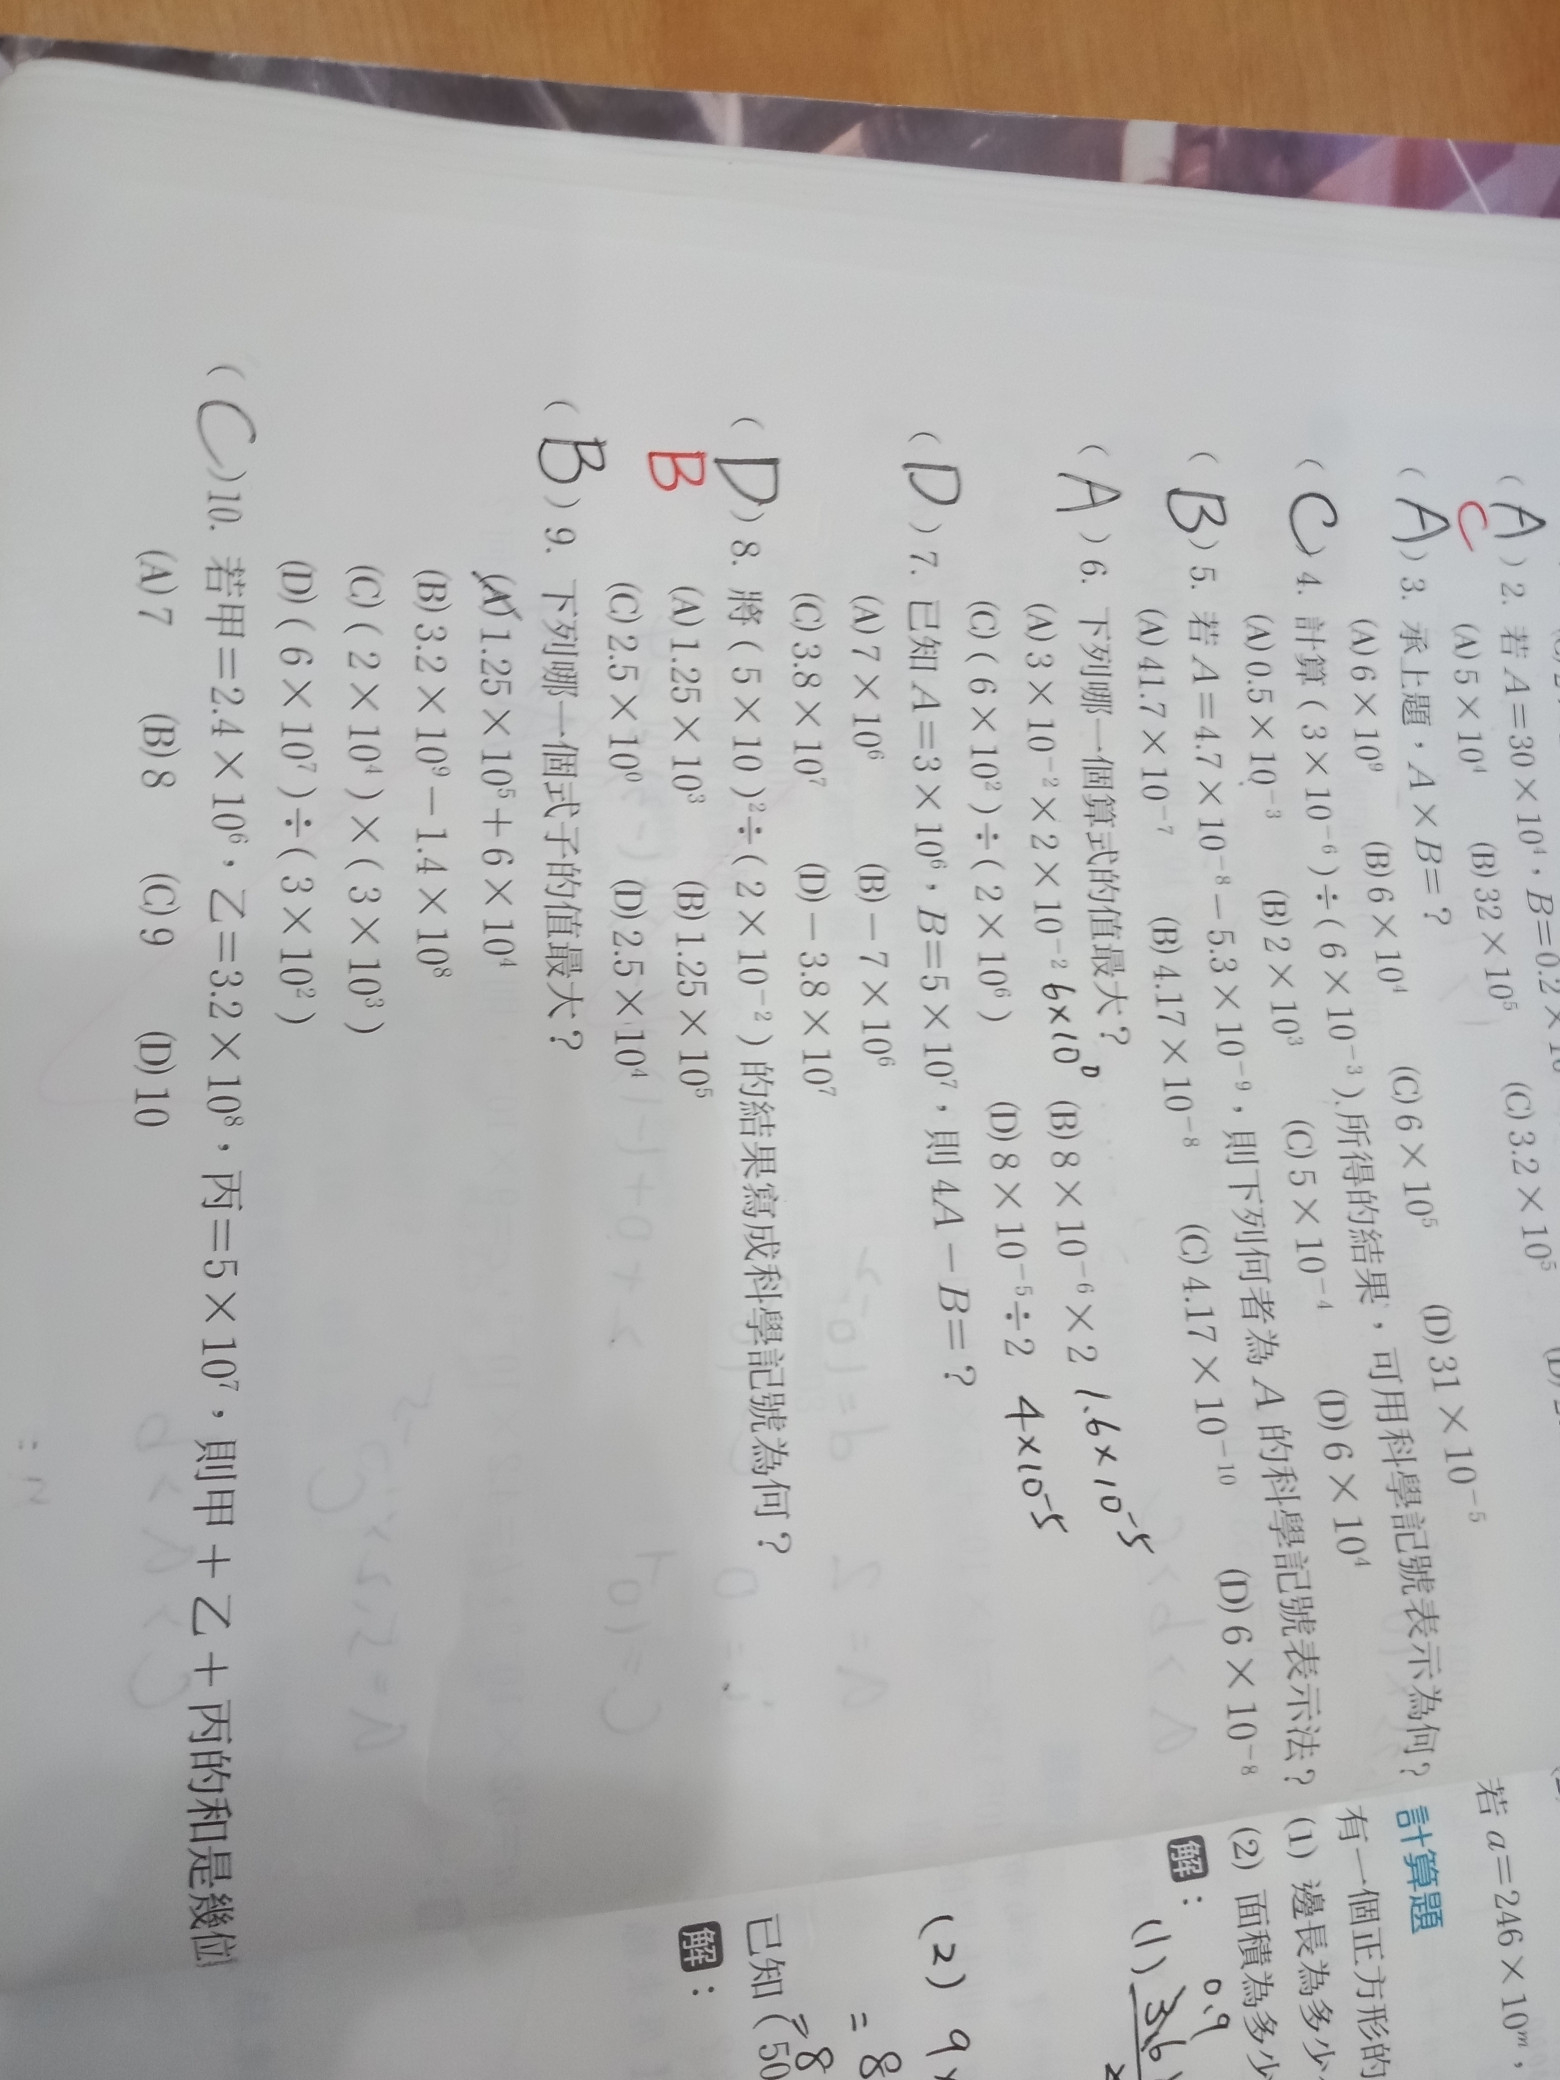 (A) 2. 若 A=30×10⁴，B=0.2×10
C
(A) 5×10⁴ (B) 32×10⁵ (C) 3.2×10⁵
(A) 3. 承上題，A×B=？
(A) 6×10⁹ (B) 6×10⁴ (C) 6×10⁵ (D) 31×10⁻⁵
(C) 4. 計算（3×10⁻⁶）÷（6×10⁻³）所得的結果，可用科學記號表示為何？
(A) 0.5×10⁻³ (B) 2×10³ (C) 5×10⁻⁴ (D) 6×10⁴
(B) 5. 若 A=4.7×10⁻⁸－5.3×10⁻⁹，則下列何者為 A 的科學記號表示法？
(A) 41.7×10⁻⁷ (B) 4.17×10⁻⁸ (C) 4.17×10⁻¹⁰ (D) 6×10⁻⁸
(A) 6. 下列哪一個算式的值最大？
(A) 3×10⁻²×2×10⁻² 6×10⁰ (B) 8×10⁻⁶×2 1.6×10⁻⁵
(C)（6×10²）÷（2×10⁶） (D) 8×10⁻⁵÷2 4×10⁻⁵
(D) 7. 已知 A=3×10⁶，B=5×10⁷，則 4A－B=？
(A) 7×10⁶ (B)－7×10⁶
(C) 3.8×10⁷ (D)－3.8×10⁷
(D) 8. 將（5×10）²÷（2×10⁻²）的結果寫成科學記號為何？
B
(A) 1.25×10³ (B) 1.25×10⁵
(C) 2.5×10⁰ (D) 2.5×10⁴
(B) 9. 下列哪一個式子的值最大？
(A) 1.25×10⁵＋6×10⁴
(B) 3.2×10⁹－1.4×10⁸
(C)（2×10⁴）×（3×10³）
(D)（6×10⁷）÷（3×10²）
(C) 10. 若甲=2.4×10⁶，乙=3.2×10⁸，丙=5×10⁷，則甲＋乙＋丙的和是幾位
(A) 7 (B) 8 (C) 9 (D) 10
若 a=246×10ᵐ，
計算題
有一個正方形的
(1) 邊長為多少
(2) 面積為多少
解：
(1) 3.6
0.9
(2) 9
=8
=8
已知（50
解：